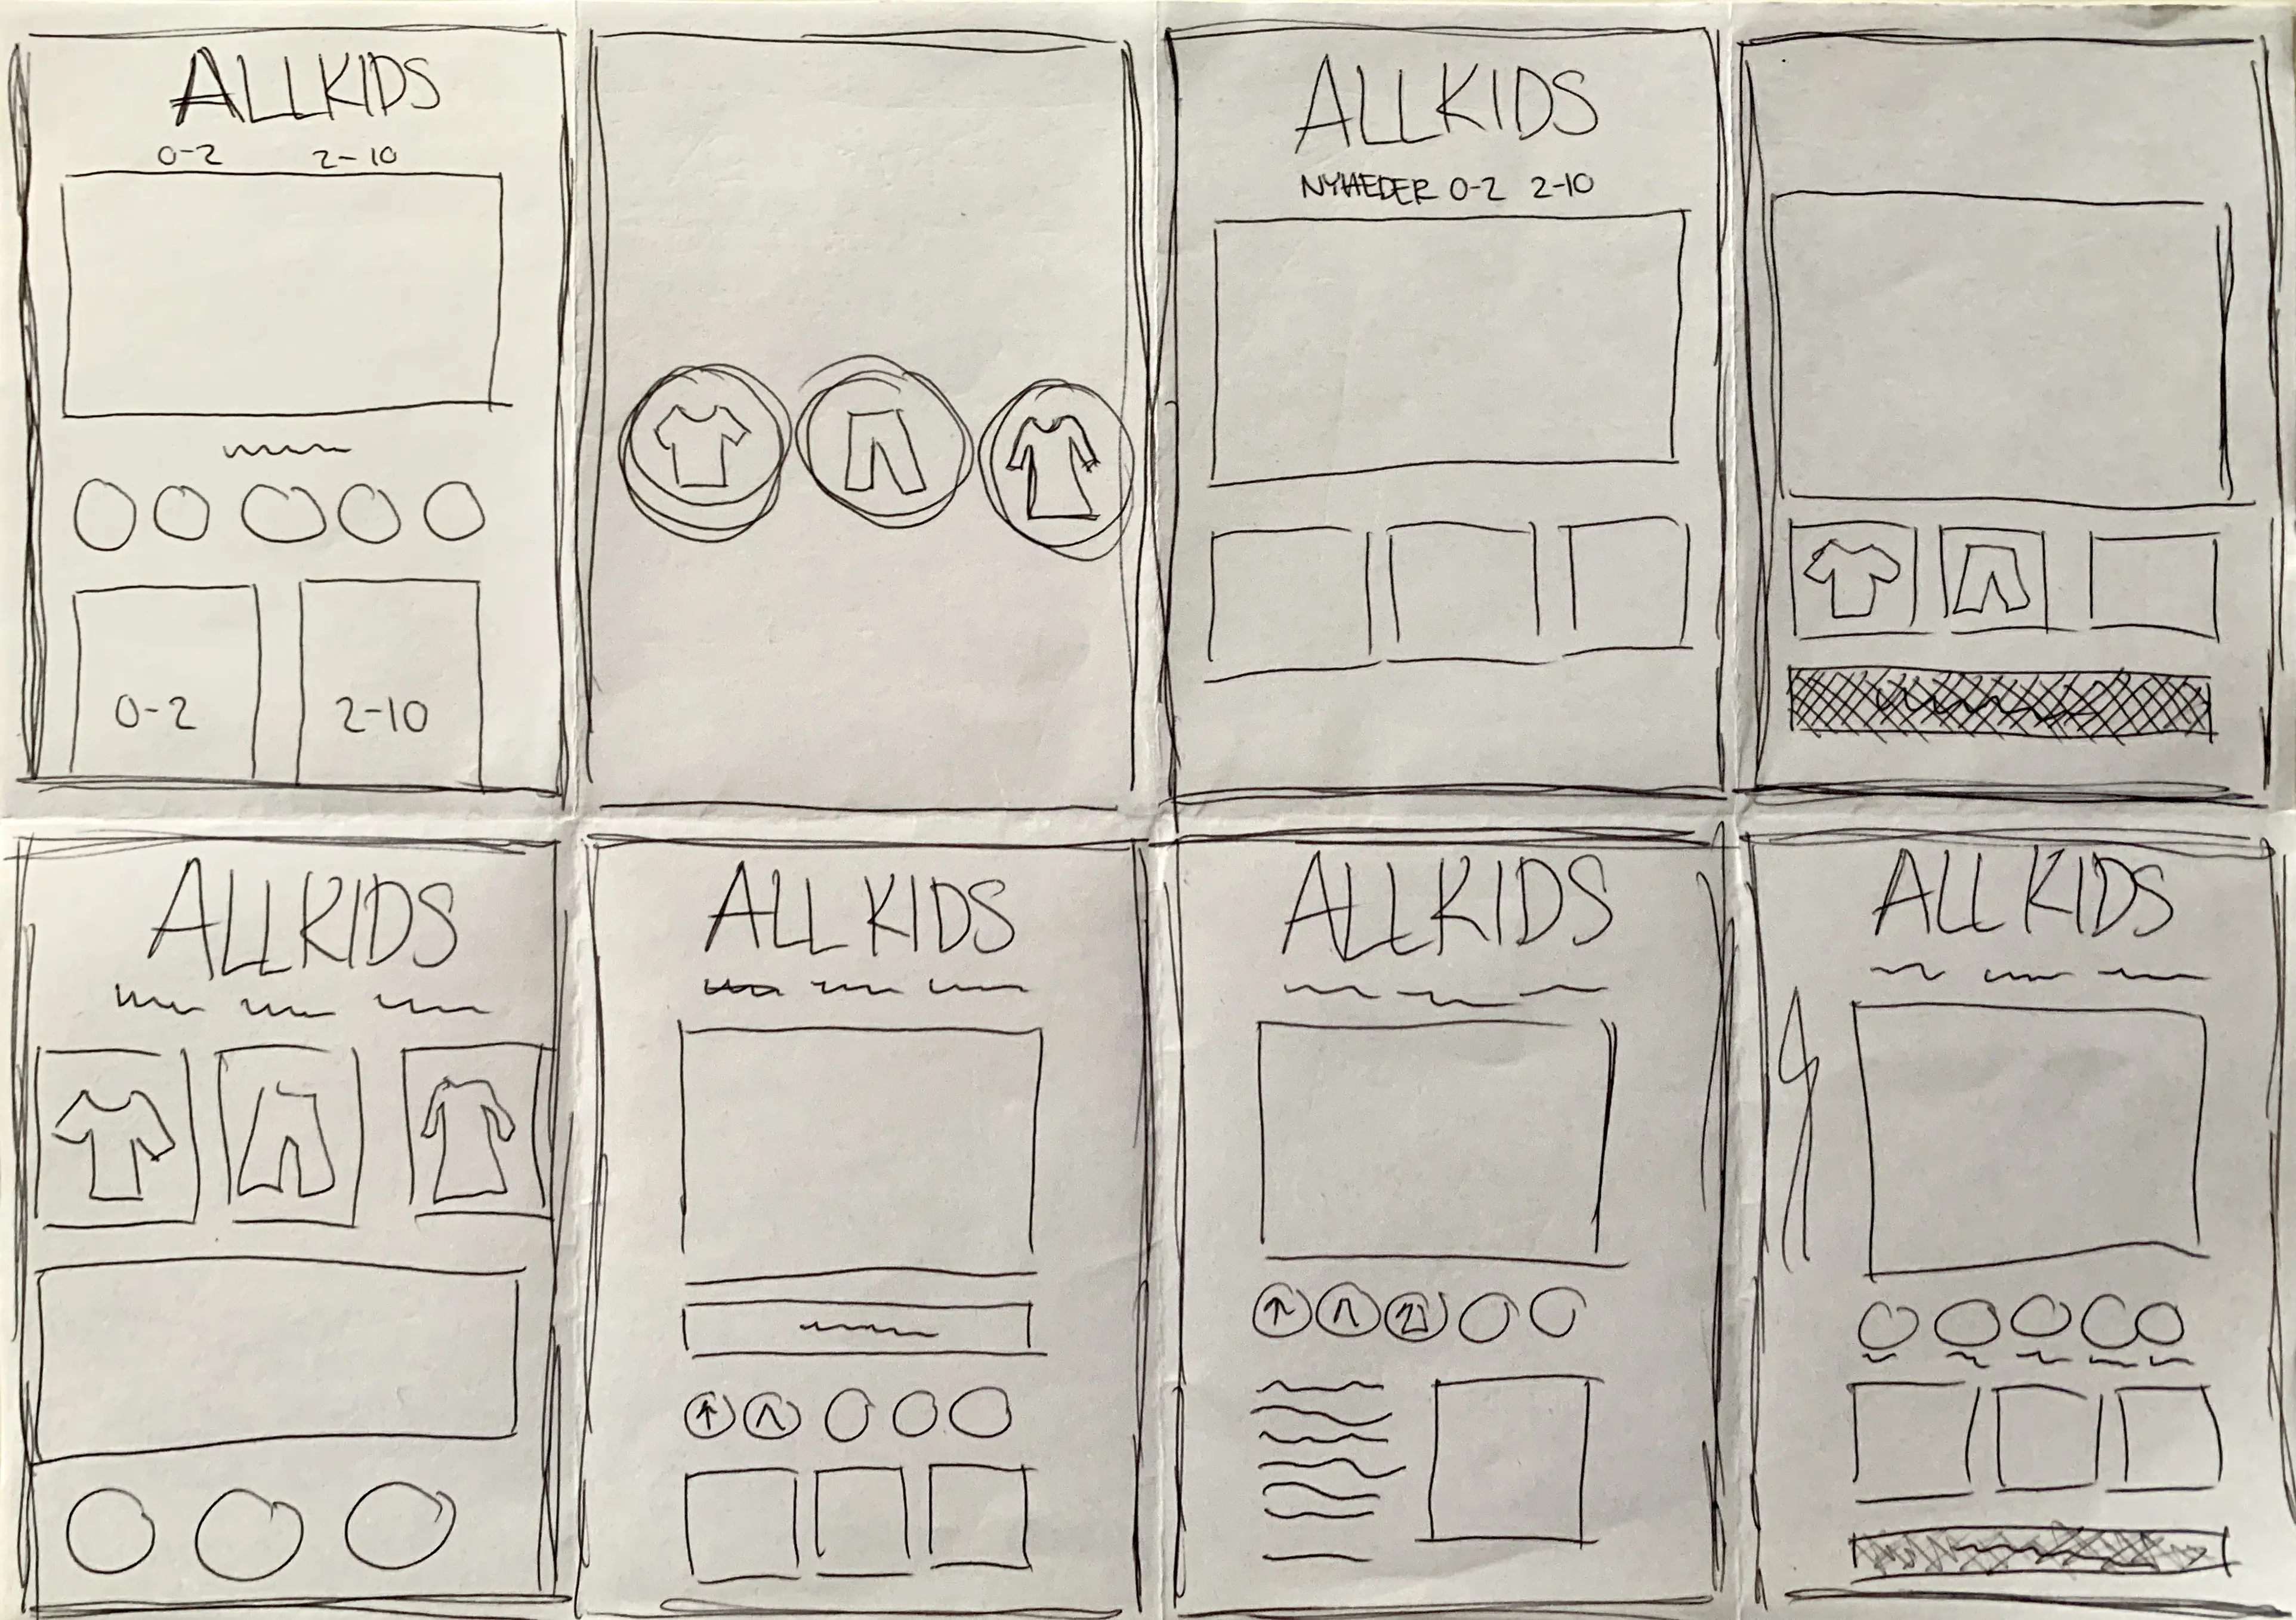 ALLKIDS
0-2 2-10
0-2 2-10
ALLKIDS
NYHEDER 0-2 2-10
ALLKIDS
ALL KIDS
ALLKIDS
ALL KIDS